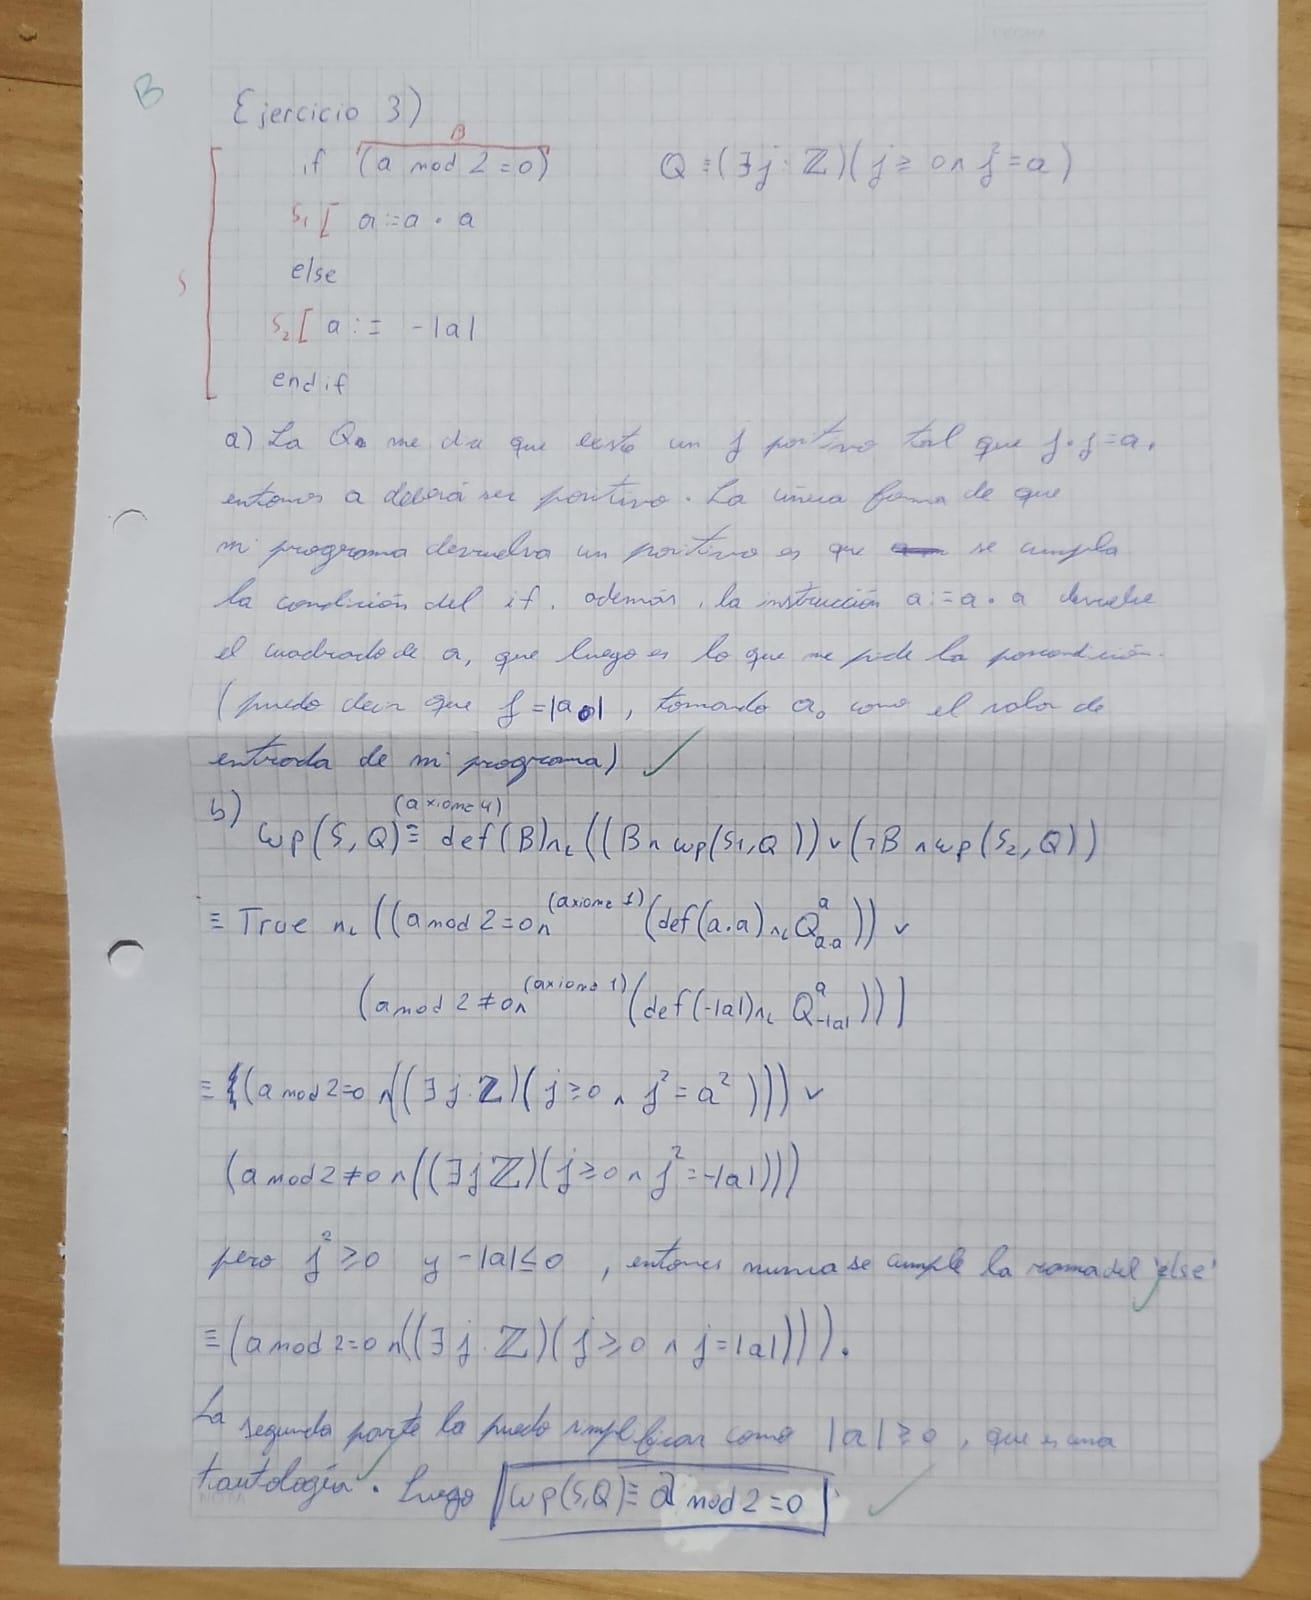 B
Ejercicio 3)
B
if (a mod 2 = 0)    Q ≡ (∃j : ℤ)(j ≥ 0 ∧ j² = a)
S₁ [ a := a · a
else
S
S₂ [ a := -|a|
endif
a) La Q me da que existe un j positivo tal que j·j = a,
entonces a deberá ser positivo. La única forma de que
mi programa devuelva un positivo es que se cumpla
la condición del if. además, la instrucción a := a · a devuelve
el cuadrado de a, que luego es lo que me pide la poscondición.
(puedo decir que j = |a₀|, tomando a₀ como el valor de
entrada de mi programa) ✓
b) wp(S, Q) ≡ (axioma 4) def(B) ∧L ((B ∧ wp(S₁, Q)) ∨ (¬B ∧ wp(S₂, Q))
≡ True ∧L ((a mod 2 = 0 ∧ (axioma 1) (def(a·a) ∧L Q^a_{a·a})) ∨
(a mod 2 ≠ 0 ∧ (axioma 1) (def(-|a|) ∧L Q^a_{-|a|}))]
≡ ((a mod 2 = 0 ∧ ((∃j : ℤ)(j ≥ 0 ∧ j² = a²))) ∨
(a mod 2 ≠ 0 ∧ ((∃j ℤ)(j ≥ 0 ∧ j² = -|a|)))
pero j² ≥ 0 y -|a| ≤ 0, entonces nunca se cumple la rama del 'else' ✓
≡ (a mod 2 = 0 ∧ ((∃j : ℤ)(j ≥ 0 ∧ j = |a|))).
La segunda parte la puedo simplificar como |a| ≥ 0, que es una
tautología ✓. Luego wp(S, Q) ≡ a mod 2 = 0 ✓